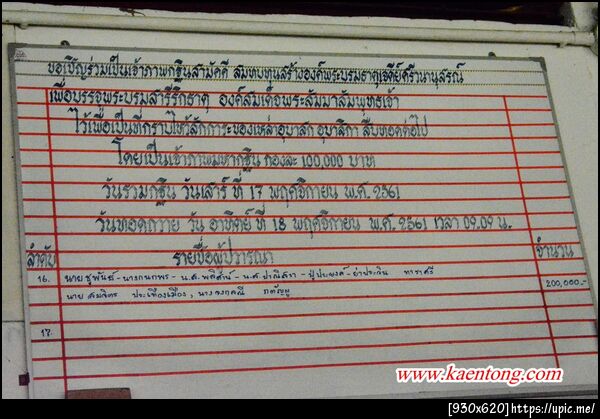 ขอเชิญร่วมเป็นเจ้าภาพกฐินสามัคคี สมทบทุนสร้างองค์พระบรมธาตุเจดีย์ศรีนานุสรณ์
เพื่อบรรจุพระบรมสารีริกธาตุ องค์สมเด็จพระสัมมาสัมพุทธเจ้า
ไว้เพื่อเป็นที่กราบไหว้สักการะของเหล่าอุบาสก อุบาสิกา สืบทอดต่อไป
โดยเป็นเจ้าภาพมหากฐิน กองละ 100,000 บาท
วันรวมกฐิน วันเสาร์ ที่ 17 พฤศจิกายน พ.ศ. 2561
วันทอดถวาย วัน อาทิตย์ ที่ 18 พฤศจิกายน พ.ศ. 2561 เวลา 09.09 น.
ลำดับ รายชื่อผู้ปวารณา จำนวน
16. นาย ชูพันธ์ - นางกนกพร - น.ส. - น.ส. ปาณิสรา - 200,000.-
นาย สมจิตร ประเทืองเมือง, นาง
17.
www.kaentong.com
[930x620]https://upic.me/